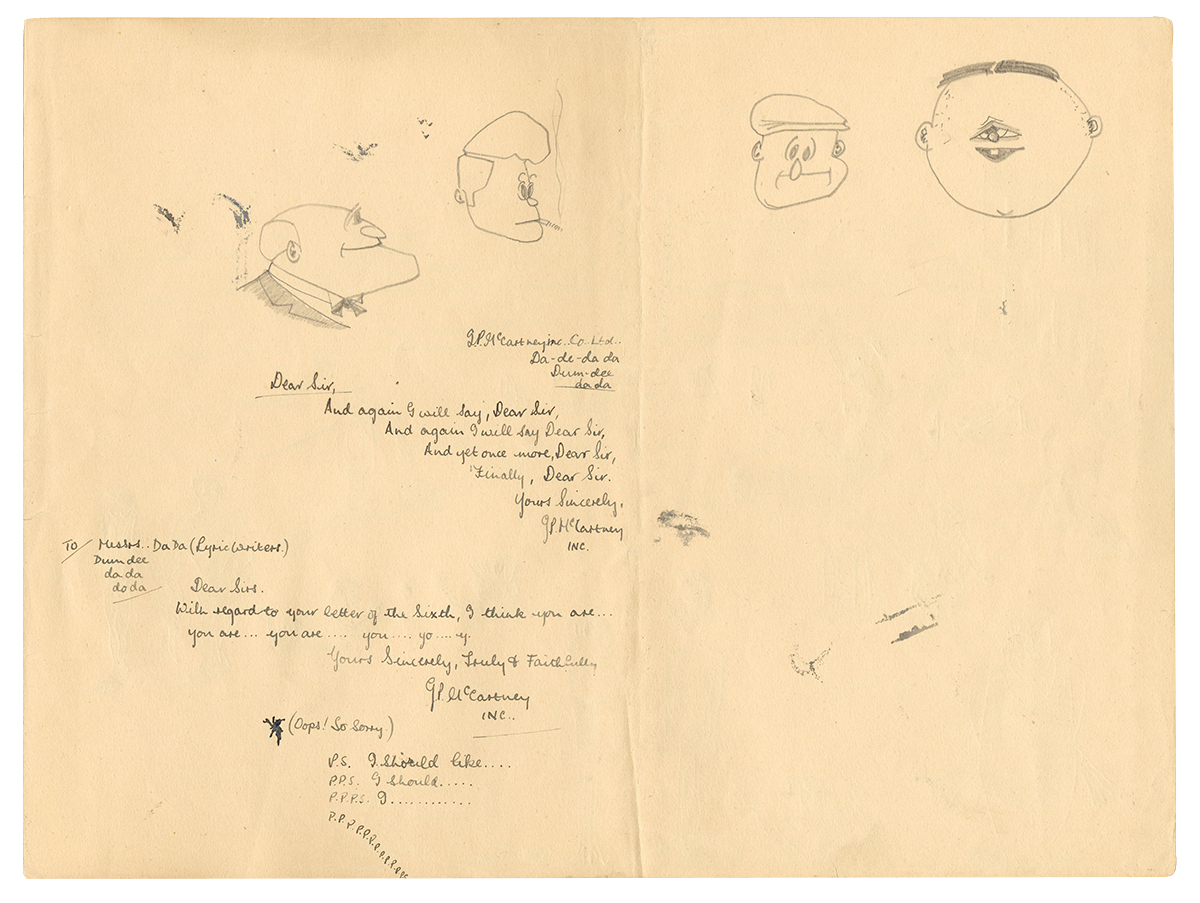 J.P. McCartney inc.. Co Ltd..
Da-de-da da
Dum-dee
da da
Dear Sir,
And again I will say, Dear Sir,
And again I will say Dear Sir,
And yet once more, Dear Sir,
Finally, Dear Sir.
Yours Sincerely,
J.P. McCartney
INC.
TO/ Messrs.. Da Da (Lyric Writers.)
Dum dee
da da
do da
Dear Sirs.
With regard to your letter of the Sixth, I think you are...
you are... you are.... you.... yo.... y.
Yours Sincerely, Truly & Faithfully
J.P. McCartney
INC..
(Oops! So Sorry.)
P.S. I should like....
P.P.S. I should.....
P.P.P.S. I............